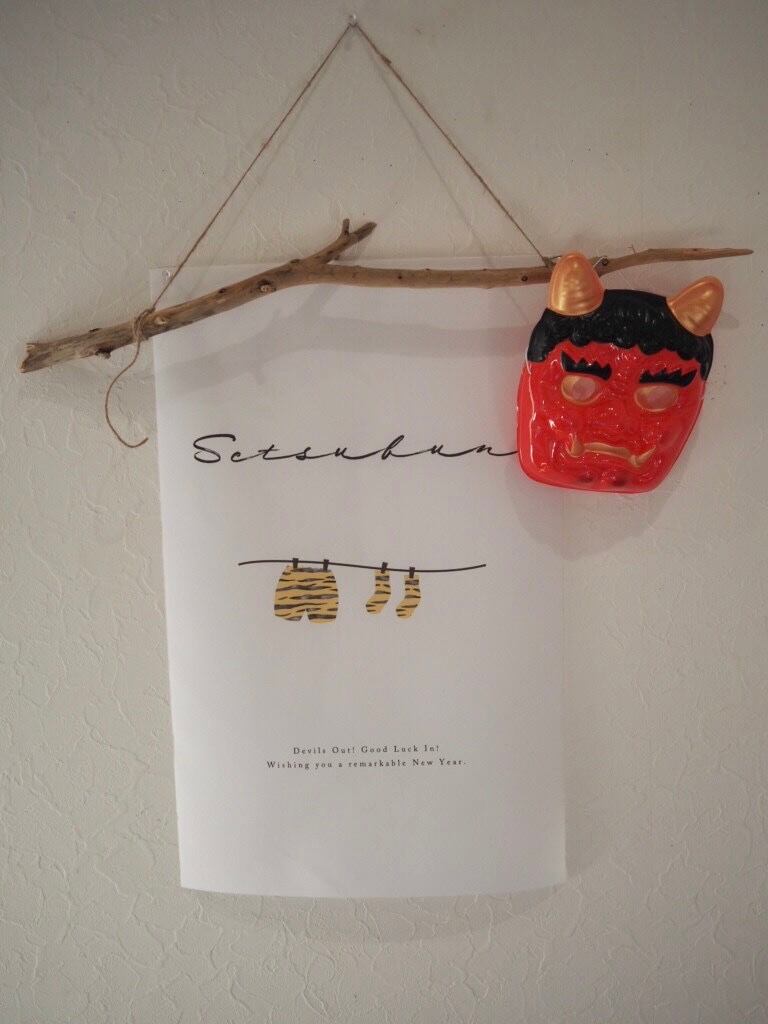 Setsubun
Devils Out! Good Luck In!
Wishing you a remarkable New Year.